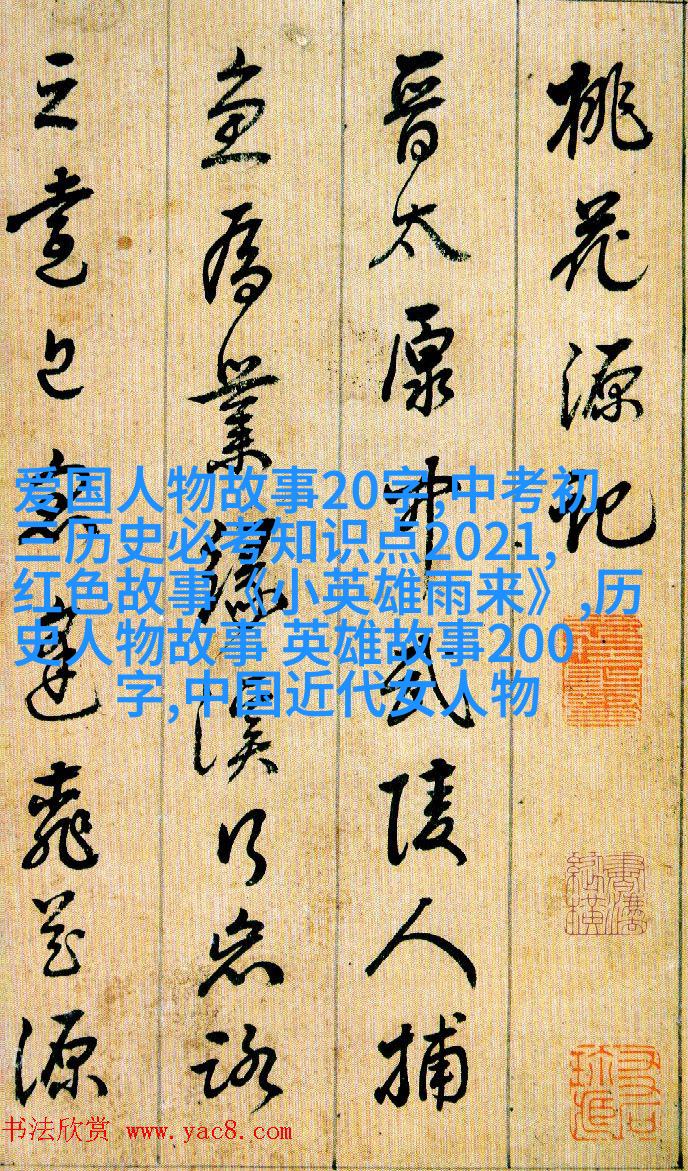 桃花源记
晋太原中武陵人捕
鱼为业缘溪行忘路
之远近忽逢桃花源
爱国人物故事20字,中考初
三历史必考知识点2021,
红色故事《小英雄雨来》,历
史人物故事 英雄故事200
字,中国近代女人物
书法欣赏 www.yac8.com